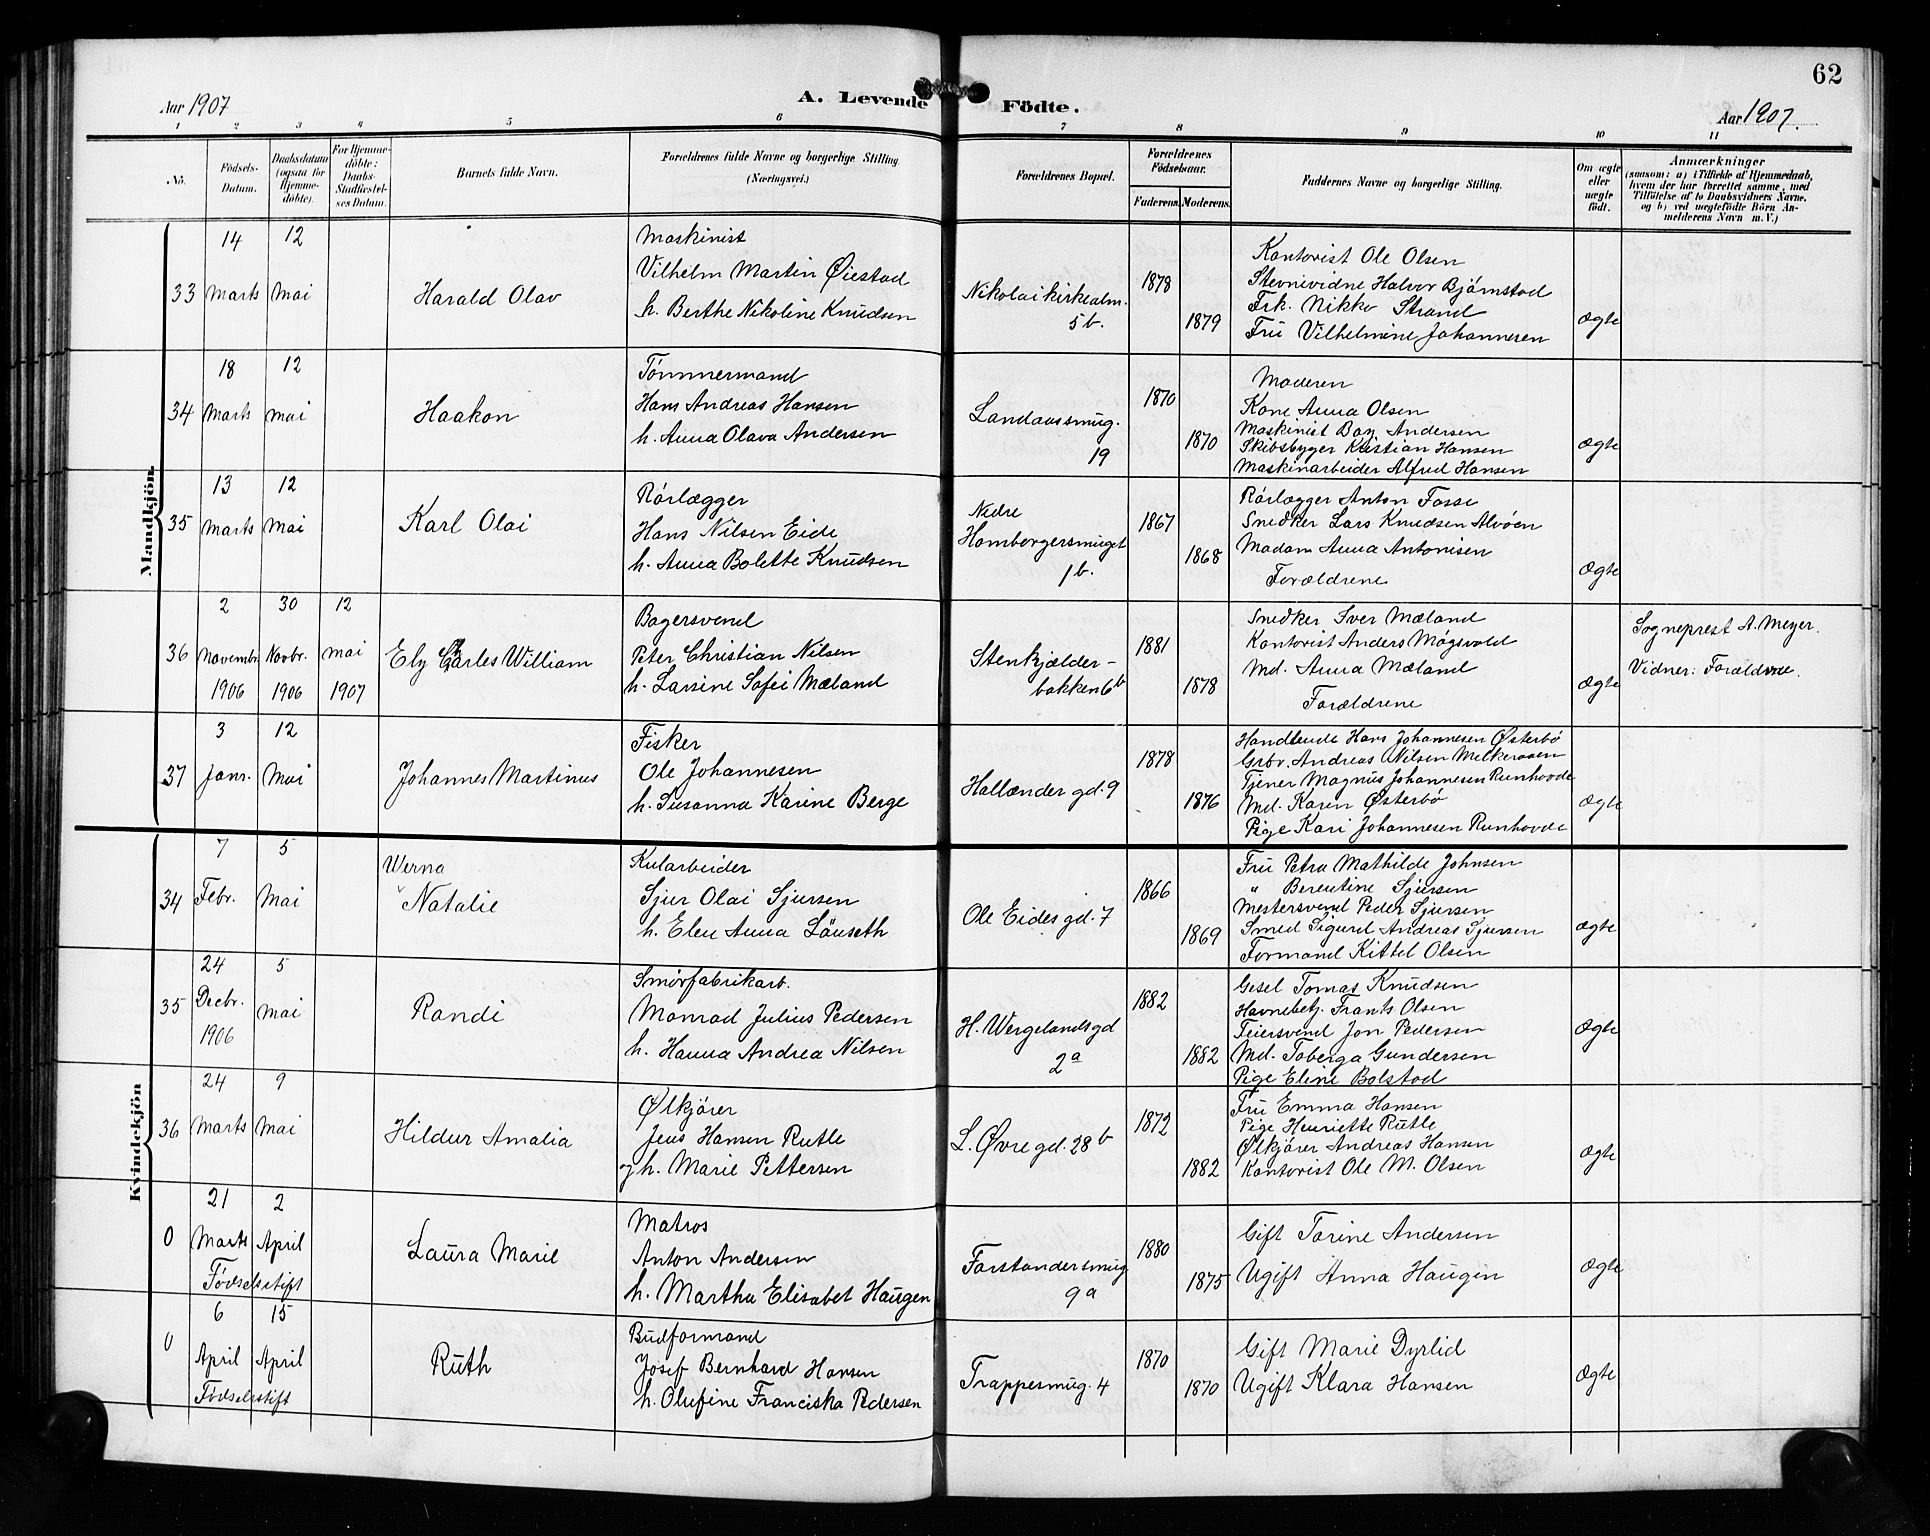 62
Aar 1907
A. Levende Födte.
Aar 1907.
1 2 3 4 5 6 7 8 9 10 11
No.
Födsels-Datum.
Daabsdatum (ogsaa for Hjemme-döbte).
For Hjemme-döbte: Daabs-Stadfæstel-ses Datum.
Barnets fulde Navn.
Forældrenes fulde Navne og borgerlige Stilling
(Næringsvei.)
Forældrenes Bopæl.
Forældrenes Födselsaar.
Faderens. Moderens.
Faddernes Navne og borgerlige Stilling.
Om ægte eller uægte födt.
Anmærkninger
(saasom: a) i Tilfælde af Hjemmedaab,
hvem der har forrettet samme, med
Tilföielse af to Daabsvidners Navne.
og b) ved uægtefödte Börn An-
melderens Navn m. V.)
Mandkjön.
33
14 Marts
12 Mai
Harald Olav
Maskinist
Vilhelm Martin Øiestad
h. Berthe Nikoline Knudsen
Nikolaikirkealm.
5b.
1878
1879
Kontorist Ole Olsen
Stevnevidne Halvor Bjørnstad
Frk. Nikko Strand
Fru Vilhelmine Johannesen
Ægte
34
18 Marts
12 Mai
Haakon
Tømmermand
Hans Andreas Hansen
h. Anna Olava Andersen
Landaassmug.
19
1870
1870
Moderen
Kone Anna Olsen
Maskinist Andersen
Skibsbyger Kristian Hansen
Maskinarbeider Alfred Hansen
Ægte
35
13 Marts
12 Mai
Karl Olai
Rörlægger
Hans Nilsen Eide
h. Anna Bolette Knudsen
Nedre
Hamborgersmuget
1b.
1867
1868
Rörlægger Anton Fosse
Snedker Lars Knudsen Alvöen
Madam Anna Antonisen
Forældrene
Ægte
36
2 Novembr. 1906
30 Novbr. 1906
12 Mai 1907
Ely Charles William
Bagersvend
Peter Christian Nilsen
h. Larsine Sofie Mæland
Stenkjælder-
bakken 6b
1881
1878
Snedker Iver Mæland
Kontorist Anders Møgsvold
Md. Anna Mæland
Forældrene
Ægte
Sogneprest A. Meyer.
Vidner: Forældrene.
37
3 Janr.
12 Mai
Johannes Martinus
Fisker
Ole Johannesen
h. Susanna Karine Berge
Hallænder gd. 9
1878
1876
Handlende Hans Johannesen Østerbö
Grbr. Andreas Nilsen Melkeraaen
Tjener Magnus Johannesen Runhovde
Md. Karen Østerbö
Pige Kari Johannesen Runhovde
Ægte
Kvindekjön
34
7 Febr.
5 Mai
Werna
Natalie
Kularbeider
Sjur Olai Sjursen
h. Elen Anna Lönseth
Ole Eides gd. 7
1866
1869
Fru Petra Mathilde Johnsen
" Berentine Sjursen
Mestersvend Peder Sjursen
Smed Sigurd Andreas Sjursen
Formand Kittel Olsen
Ægte
35
24 Decbr. 1906
5 Mai
Randi
Smörfabrikarb.
Monrad Julius Pedersen
h. Hanna Andrea Nilsen
H. Wergelandsgd
2a
1882
1882
Gesel Tomas Knudsen
Havnebetj. Frants Olsen
Feiersvend Jon Pedersen
Md. Toberga Gundersen
Pige Eline Bolstad
Ægte
36
24 Marts
9 Mai
Hildur Amalia
Ølkjörer
Jens Hansen Rutle
og h. Marie Pettersen
L. Øvre gd. 28b
1872
1882
Fru Emma Hansen
Pige Henriette Rutle
Ølkjörer Andreas Hansen
Kontorist Ole M. Olsen
Ægte
0
21 Marts
2 April
Födselsstift
Laura Marie
Matros
Anton Andersen
h. Martha Elisabet Haugen
Forstandersmug
9a
1880
1875
Gift Torine Andersen
Ugift Anna Haugen
Ægte
0
6 April
15 April
Födselsstift
Ruth
Budformand
Josef Bernhard Hansen
h. Olufine Franciska Pedersen
Trappesmug. 4
1870
1870
Gift Marie Dyrlid
Ugift Klara Hansen
Ægte